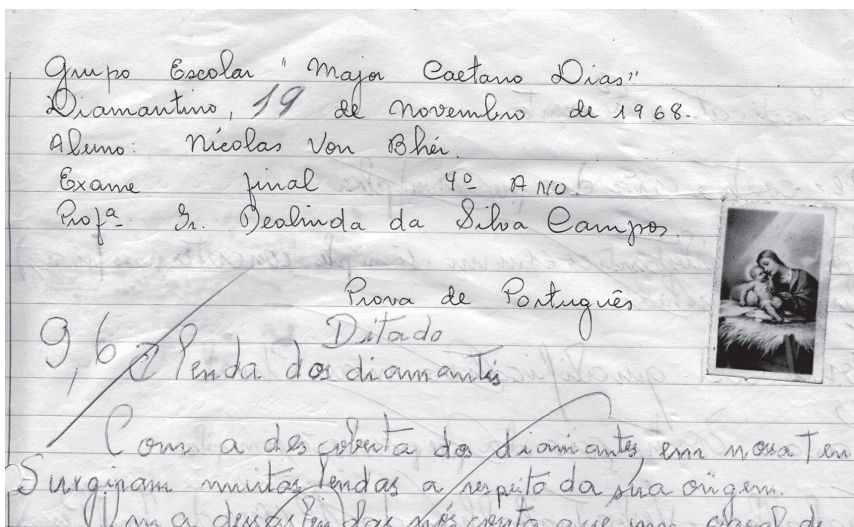 Grupo Escolar "Major Caetano Dias"
Diamantino, 19 de novembro de 1968.
Aluno: Nicolas Von Bhéi.
Exame final 4º ANO.
Profª. Sr. Dealinda da Silva Campos.
Prova de Português
Ditado
9,6
A lenda dos diamantes
Com a descoberta dos diamantes em nossa Terr
Surgiram muitas lendas a respeito da sua origem.
Uma dessas lendas nós conta que um